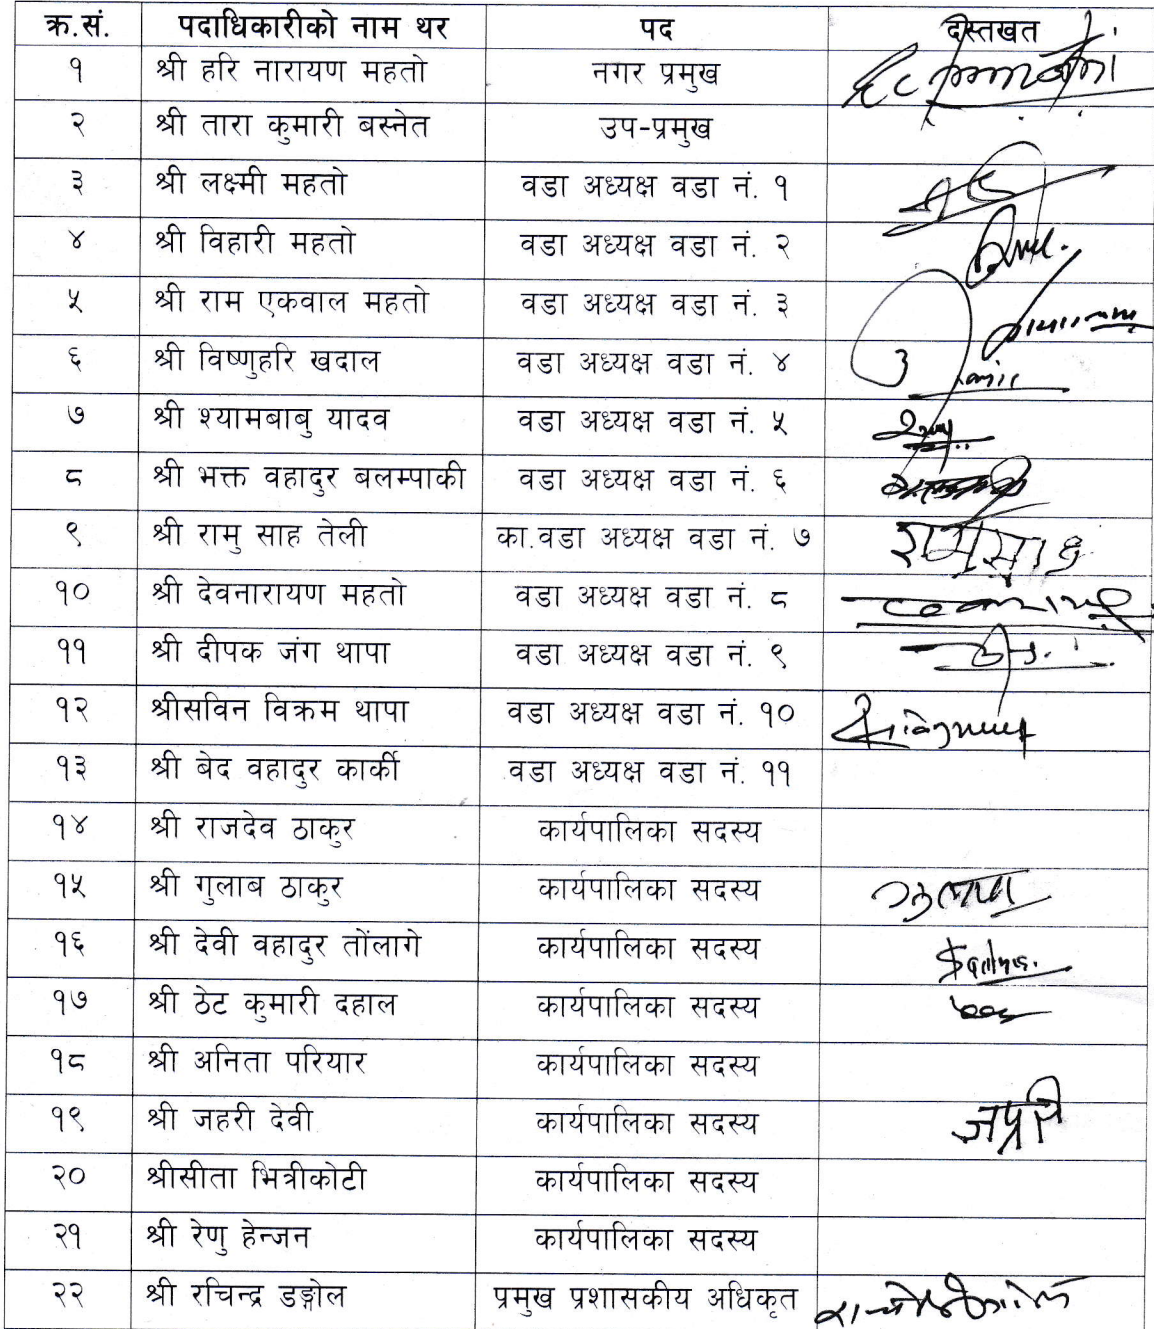 क्र.सं. पदाधिकारीको नाम थर पद दस्तखत
१ श्री हरि नारायण महतो नगर प्रमुख
२ श्री तारा कुमारी बस्नेत उप-प्रमुख
३ श्री लक्ष्मी महतो वडा अध्यक्ष वडा नं. १
४ श्री विहारी महतो वडा अध्यक्ष वडा नं. २
५ श्री राम एकवाल महतो वडा अध्यक्ष वडा नं. ३
६ श्री विष्णुहरि खदाल वडा अध्यक्ष वडा नं. ४
७ श्री श्यामबाबु यादव वडा अध्यक्ष वडा नं. ५
८ श्री भक्त वहादुर बलम्पाकी वडा अध्यक्ष वडा नं. ६
९ श्री रामु साह तेली का.वडा अध्यक्ष वडा नं. ७ रामु साह
१० श्री देवनारायण महतो वडा अध्यक्ष वडा नं. ८
११ श्री दीपक जंग थापा वडा अध्यक्ष वडा नं. ९
१२ श्रीसविन विक्रम थापा वडा अध्यक्ष वडा नं. १०
१३ श्री बेद वहादुर कार्की वडा अध्यक्ष वडा नं. ११
१४ श्री राजदेव ठाकुर कार्यपालिका सदस्य
१५ श्री गुलाब ठाकुर कार्यपालिका सदस्य
१६ श्री देवी वहादुर तोंलागे कार्यपालिका सदस्य
१७ श्री ठेट कुमारी दहाल कार्यपालिका सदस्य
१८ श्री अनिता परियार कार्यपालिका सदस्य
१९ श्री जहरी देवी कार्यपालिका सदस्य
२० श्रीसीता भित्रीकोटी कार्यपालिका सदस्य
२१ श्री रेणु हेन्जन कार्यपालिका सदस्य
२२ श्री रचिन्द्र डङ्गोल प्रमुख प्रशासकीय अधिकृत